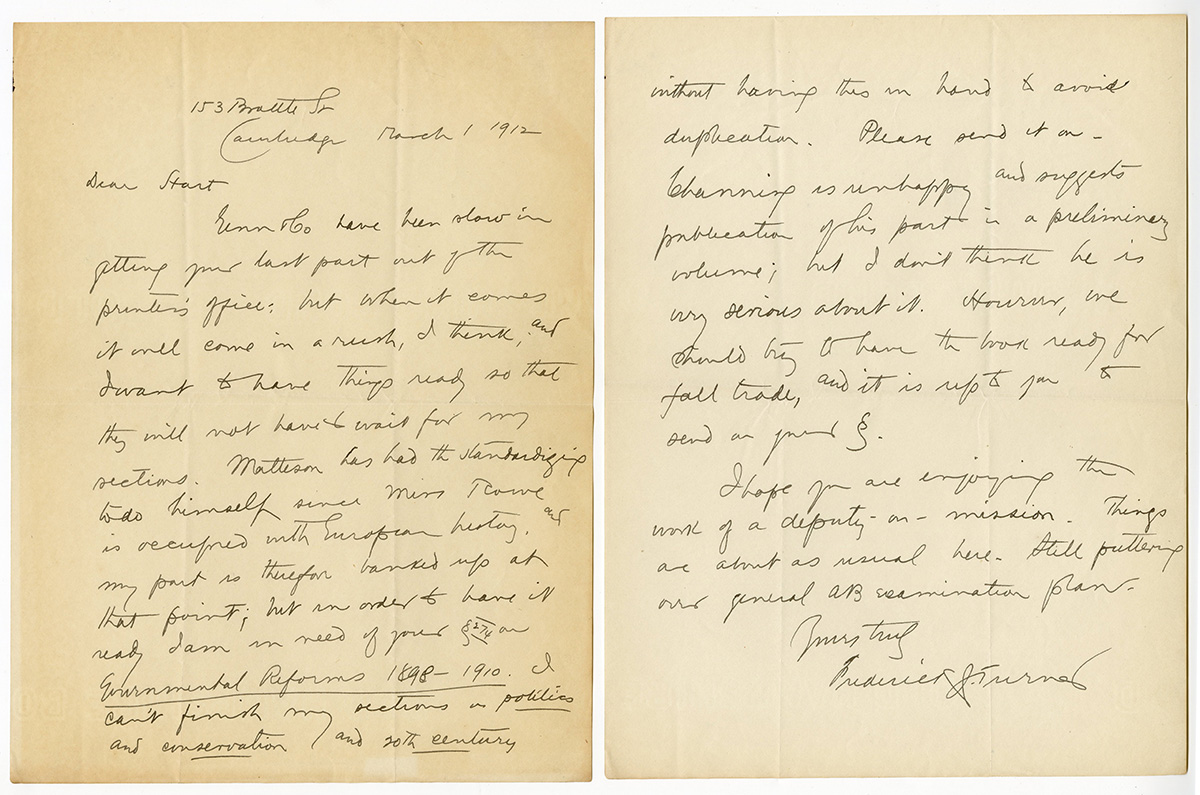 153 Brattle St
Cambridge March 1 1912
Dear Hart
Ginn & Co have been slow in
getting your last part out of the
printer's office; but when it comes
it will come in a rush, I think, and
I want to have things ready so that
they will not have to wait for my
sections. Matteson has had the standardizing
to do himself since Miss Rowe
is occupied with European history, and
my part is therefor banked up at
that point; but in order to have it
ready I am in need of your § 274 on
Governmental Reforms 1898-1910. I
can't finish my sections on politics
and conservation and 20th century
without having this in hand to avoid
duplication. Please send it on-
Channing is unhappy and suggests
publication of his part in a preliminary
volume; but I don't think he is
very serious about it. However, we
should try to have the book ready for
fall trade, and it is up to you to
send on your §.
I hope you are enjoying the
work of a deputy-on-mission. Things
are about as usual here. Still puttering
over general AB examination plan.
Yours truly
Frederick J. Turner